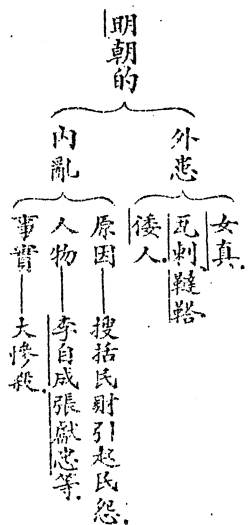 明朝的
外患
女真.
瓦剌.韃靼.
倭人.
內亂
原因——搜括民財引起民怨.
人物——李自成張獻忠等.
事實——大慘殺.